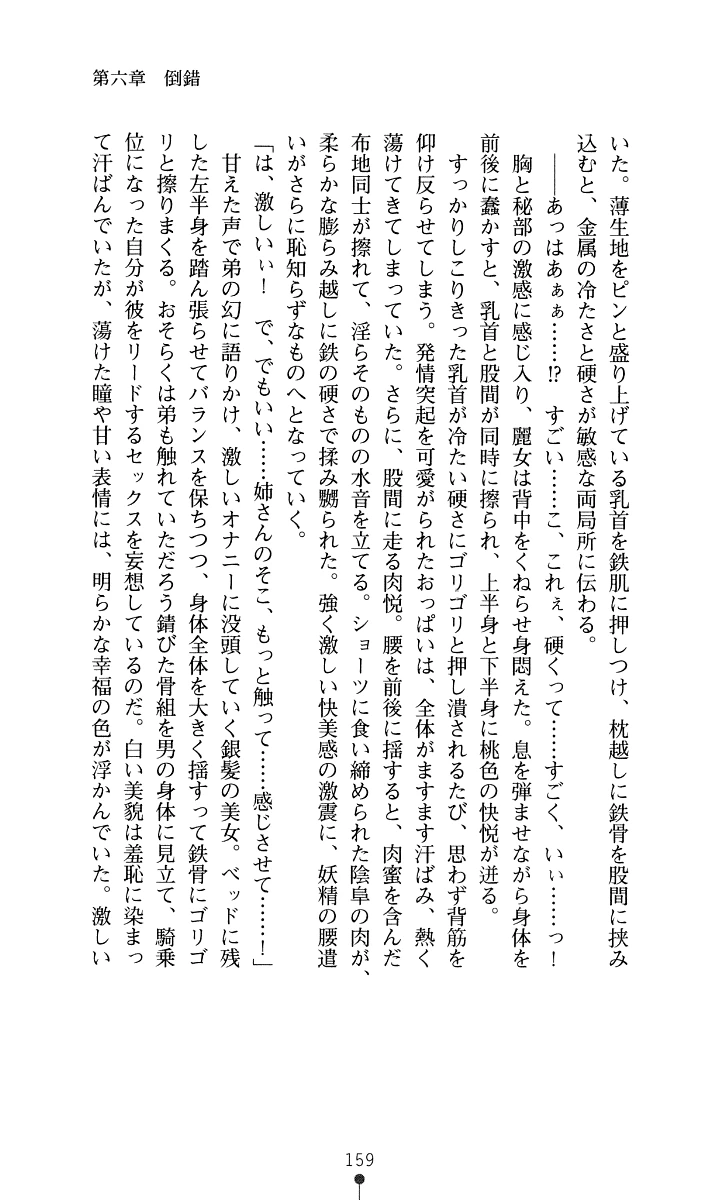 第六章　倒錯
いた。薄生地をピンと盛り上げている乳首を鉄肌に押しつけ、枕越しに鉄骨を股間に挟み
込むと、金属の冷たさと硬さが敏感な両局所に伝わる。
　――あっはあぁぁ……!?　すごい……こ、これぇ、硬くって……すごく、いぃ……っ！
　胸と秘部の激感に感じ入り、麗女は背中をくねらせ身悶えた。息を弾ませながら身体を
前後に蠢かすと、乳首と股間が同時に擦られ、上半身と下半身に桃色の快悦が迸る。
　すっかりしこりきった乳首が冷たい硬さにゴリゴリと押し潰されるたび、思わず背筋を
仰け反らせてしまう。発情突起を可愛がられたおっぱいは、全体がますます汗ばみ、熱く
蕩けてきてしまっていた。さらに、股間に走る肉悦。腰を前後に揺すると、肉蜜を含んだ
布地同士が擦れて、淫らそのものの水音を立てる。ショーツに食い締められた陰阜の肉が、
柔らかな膨らみ越しに鉄の硬さで揉み嬲られた。強く激しい快美感の激震に、妖精の腰遣
いがさらに恥知らずなものへとなっていく。
「は、激しいぃ！　で、でもいい……姉さんのそこ、もっと触って……感じさせて……！」
　甘えた声で弟の幻に語りかけ、激しいオナニーに没頭していく銀髪の美女。ベッドに残
した左半身を踏ん張らせてバランスを保ちつつ、身体全体を大きく揺すって鉄骨にゴリゴ
リと擦りまくる。おそらくは弟も触れていただろう錆びた骨組を男の身体に見立て、騎乗
位になった自分が彼をリードするセックスを妄想しているのだ。白い美貌は羞恥に染まっ
て汗ばんでいたが、蕩けた瞳や甘い表情には、明らかな幸福の色が浮かんでいた。激しい
159